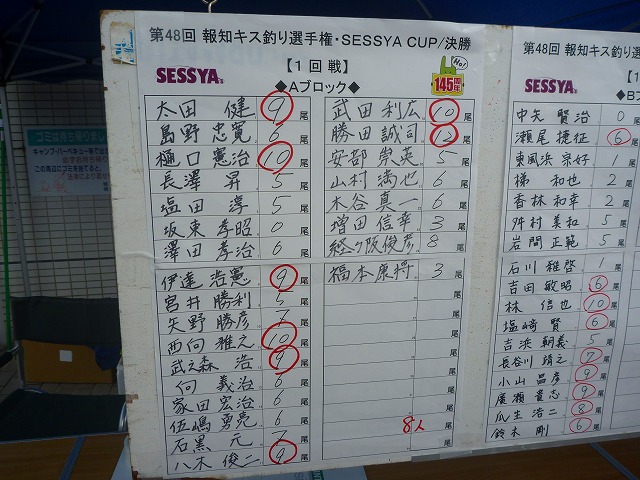 第48回 報知キス釣り選手権・SESSYA CUP/決勝
【1回戦】
SESSYA
145周年
◆Aブロック◆
太田 健 9尾
島野 忠寛 6尾
樋口 憲治 10尾
長澤 昇 5尾
塩田 淳 5尾
坂東 孝昭 0尾
澤田 孝治 6尾
伊達 浩憲 9尾
宮井 勝利 5尾
矢野 勝彦 7尾
西向 雅之 10尾
武之森 浩 9尾
向 義治 6尾
家田 宏治 6尾
伍嶋 勇亮 6尾
石黒 元 7尾
八木 俊二 9尾
武田 利広 10尾
勝田 誠司 12尾
安部 崇英 5尾
山村 満也 6尾
木谷 真一 6尾
増田 信幸 3尾
経ヶ阪俊彦 8尾
福本 康将 3尾
尾
尾
尾
尾
尾
尾
8人 尾
尾
第48回 報知キス釣り選手権
【1
SESSYA
◆Bブ
中矢 賢治 0尾
瀬尾 捷征 6尾
東風浜 宗好 1尾
梯 和也 2尾
香林 和幸 2尾
舛村 美和 5尾
岩間 正範 5尾
石川 雅啓 1尾
吉田 敏昭 6尾
林 信也 10尾
塩崎 賢 6尾
吉浜 朝義 5尾
長谷川 靖之 7尾
小山 昌彦 9尾
廣瀬 貴志 9尾
瓜生 浩二 8尾
鈴木 剛 6尾